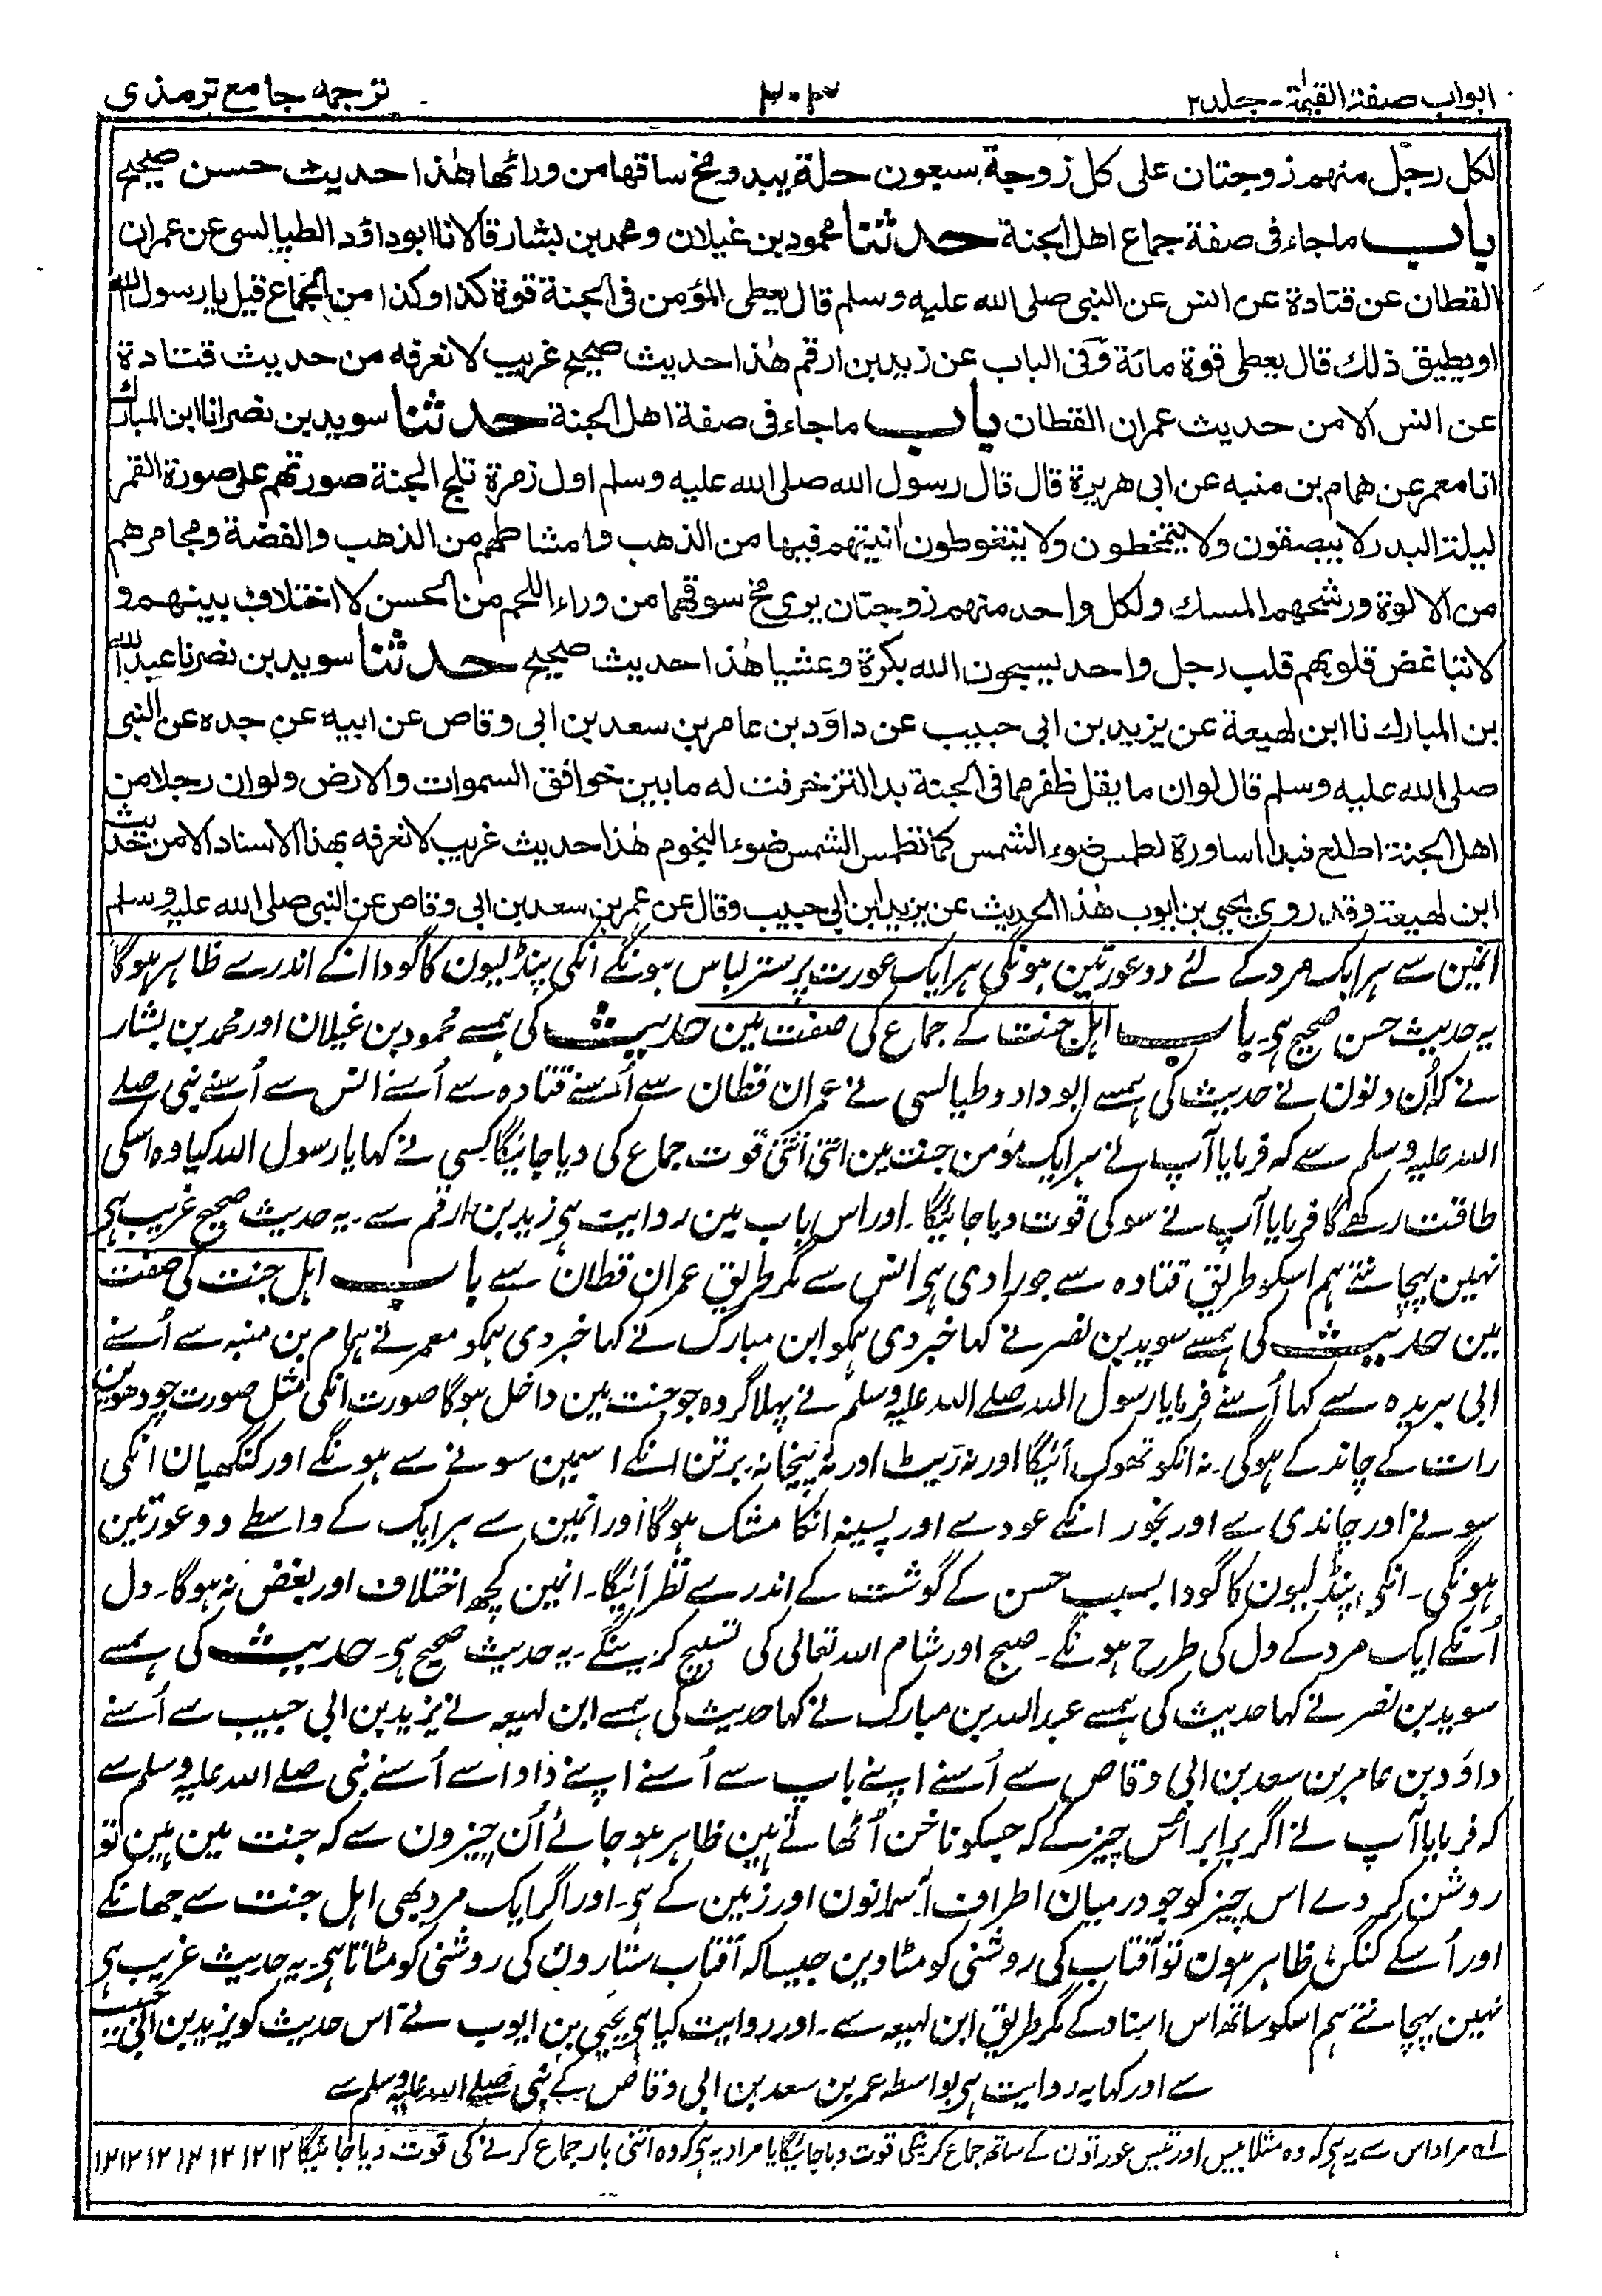 ابواب صفة القيمة - جلد ۲
ترجمه جامع ترمذی
لكل رجل منهم زوجتان على كل زوجة سبعون حلة يبدو مخ ساقها من ورائها هذا حديث حسن صحيح
باب ماجاء فى صفة جماع اهل الجنة حدثنا محمود بن غيلان ومحمد بن بشار قالا نا ابو داؤد الطيالسى عن عمران
القطان عن قتادة عن انس عن النبى صلى الله عليه وسلم قال يعطى المؤمن فى الجنة قوة كذا وكذا من الجماع قيل يا رسول الله
او يطيق ذلك قال يعطى قوة مائة وفى الباب عن زيد بن ارقم هذا حديث صحيح غريب لا نعرفه من حديث قتادة
عن انس الا من حديث عمران القطان باب ماجاء فى صفة اهل الجنة حدثنا سويد بن نصر انا ابن المبارك
انا معمر عن همام بن منبه عن ابى هريرة قال قال رسول الله صلى الله عليه وسلم اول زمرة تلج الجنة صورتهم على صورة القمر
ليلة البدر لا يبصقون ولا يتمخطون ولا يتغوطون انيتهم فيها من الذهب وامشاطهم من الذهب والفضة ومجامرهم
من الالوة ورشحهم المسك ولكل واحد منهم زوجتان يرى مخ سوقهما من وراء اللحم من الحسن لا اختلاف بينهم و
لا تباغض قلوبهم قلب رجل واحد يسبحون الله بكرة وعشيا هذا حديث صحيح حدثنا سويد بن نصر نا عبد الله
بن المبارك نا ابن لهيعة عن يزيد بن ابى حبيب عن داؤد بن عامر بن سعد بن ابى وقاص عن ابيه عن جده عن النبى
صلى الله عليه وسلم قال لو ان ما يقل ظفر مما فى الجنة بدا لتزخرفت له ما بين خوافق السموات والارض ولو ان رجلا من
اهل الجنة اطلع فبدا اساورة لطمس ضوء الشمس كما تطمس الشمس ضوء النجوم هذا حديث غريب لا نعرفه بهذا الاسناد الا من حديث
ابن لهيعة وقد روى يحيى بن ايوب هذا الحديث عن يزيد ابن ابى حبيب وقال عن عمر بن سعد بن ابى وقاص عن النبى صلى الله عليه وسلم
انمین سے ہر ایک مرد کے لئے دو عورتین ہونگی ہر ایک عورت پر ستر لباس ہونگے انکی پنڈلیون کا گودا انکے اندر سے ظاہر ہوگا
یہ حدیث حسن صحیح ہی۔ باب اہل جنت کے جماع کی صفت مین حدیث کی ہمسے محمود بن غیلان اور محمد بن بشار
نے کہا اُن دونون نے حدیث کی ہمسے ابو داود طیالسی نے عمران قطان سے اُسنے قتادہ سے اُسنے انس سے اُسنے نبی صلے
اللہ علیہ وسلم سے کہ فرمایا آپ نے ہر ایک مومن جنت مین اتنی اتنی قوت جماع کی دیا جائیگا کسی نے کہا یا رسول اللہ کیا وہ اسکی
طاقت رکھے گا فرمایا آپ نے سو کی قوت دیا جائیگا۔ اور اس باب مین روایت ہی زید بن ارقم سے۔ یہ حدیث صحیح غریب ہی
نہین پہچانتے ہم اسکو طریق قتادہ سے جو راوی ہی انس سے مگر طریق عمران قطان سے باب اہل جنت کی صفت
مین حدیث کی ہمسے سوید بن نصر نے کہا خبر دی ہمکو ابن مبارک نے کہا خبر دی ہمکو معمر نے ہمام بن منبہ سے اُسنے
ابی ہریرہ سے کہا اُسنے فرمایا رسول اللہ صلے اللہ علیہ وسلم نے پہلا گروہ جو جنت مین داخل ہوگا صورت انکی مثل صورت چودھوین
رات کے چاند کے ہوگی۔ نہ انکو تھوک آئیگا اور نہ رینٹ اور نہ پیخانہ۔ برتن انکے اسمین سونے سے ہونگے اور کنگھیان انکی
سونے اور چاندی سے اور بخور انکے عود سے اور پسینہ انکا مشک ہوگا اور انمین سے ہر ایک کے واسطے دو عورتین
ہونگی۔ انکی پنڈلیون کا گودا بسبب حسن کے گوشت کے اندر سے نظر آئیگا۔ انمین کچھ اختلاف اور بغض نہ ہوگا۔ دل
اُنکے ایک مرد کے دل کی طرح ہونگے۔ صبح اور شام اللہ تعالی کی تسبیح کرینگے۔ یہ حدیث صحیح ہی۔ حدیث کی ہمسے
سوید بن نصر نے کہا حدیث کی ہمسے عبد اللہ بن مبارک نے کہا حدیث کی ہمسے ابن لہیعہ نے یزید بن ابی حبیب سے اُسنے
داؤد بن عامر بن سعد بن ابی وقاص سے اُسنے اپنے باپ سے اُسنے اپنے دادا سے اُسنے نبی صلے اللہ علیہ وسلم سے
کہ فرمایا آپ نے اگر برابر اس چیز کے کہ جسکو ناخن اُٹھاتے ہین ظاہر ہو جائے اُن چیزون سے کہ جنت مین ہین تو
روشن کر دے اس چیز کو جو درمیان اطراف آسمانون اور زمین کے ہی۔ اور اگر ایک مرد بھی اہل جنت سے جھانکے
اور اُسکے کنگن ظاہر ہون تو آفتاب کی روشنی کو مٹا دین جیسا کہ آفتاب ستارون کی روشنی کو مٹاتا ہی۔ یہ حدیث غریب ہی
نہین پہچانتے ہم اسکو ساتھ اس اسناد کے مگر طریق ابن لہیعہ سے۔ اور روایت کیا ہی یحیی بن ایوب نے اس حدیث کو یزید بن ابی حبیب
سے اور کہا یہ روایت ہی بواسطہ عمر بن سعد بن ابی وقاص کے نبی صلے اللہ علیہ وسلم سے
لہ مراد اس سے یہ ہی کہ وہ مثلا بیس اور تیس عورتون کے ساتھ جماع کرنیکی قوت دیا جائیگا یا مراد یہ ہی کہ وہ اتنی بار جماع کرنے کی قوت دیا جائیگا ۱۲ ۱۲ ۱۲ ۱۲ ۱۲ ۱۲ ۱۲